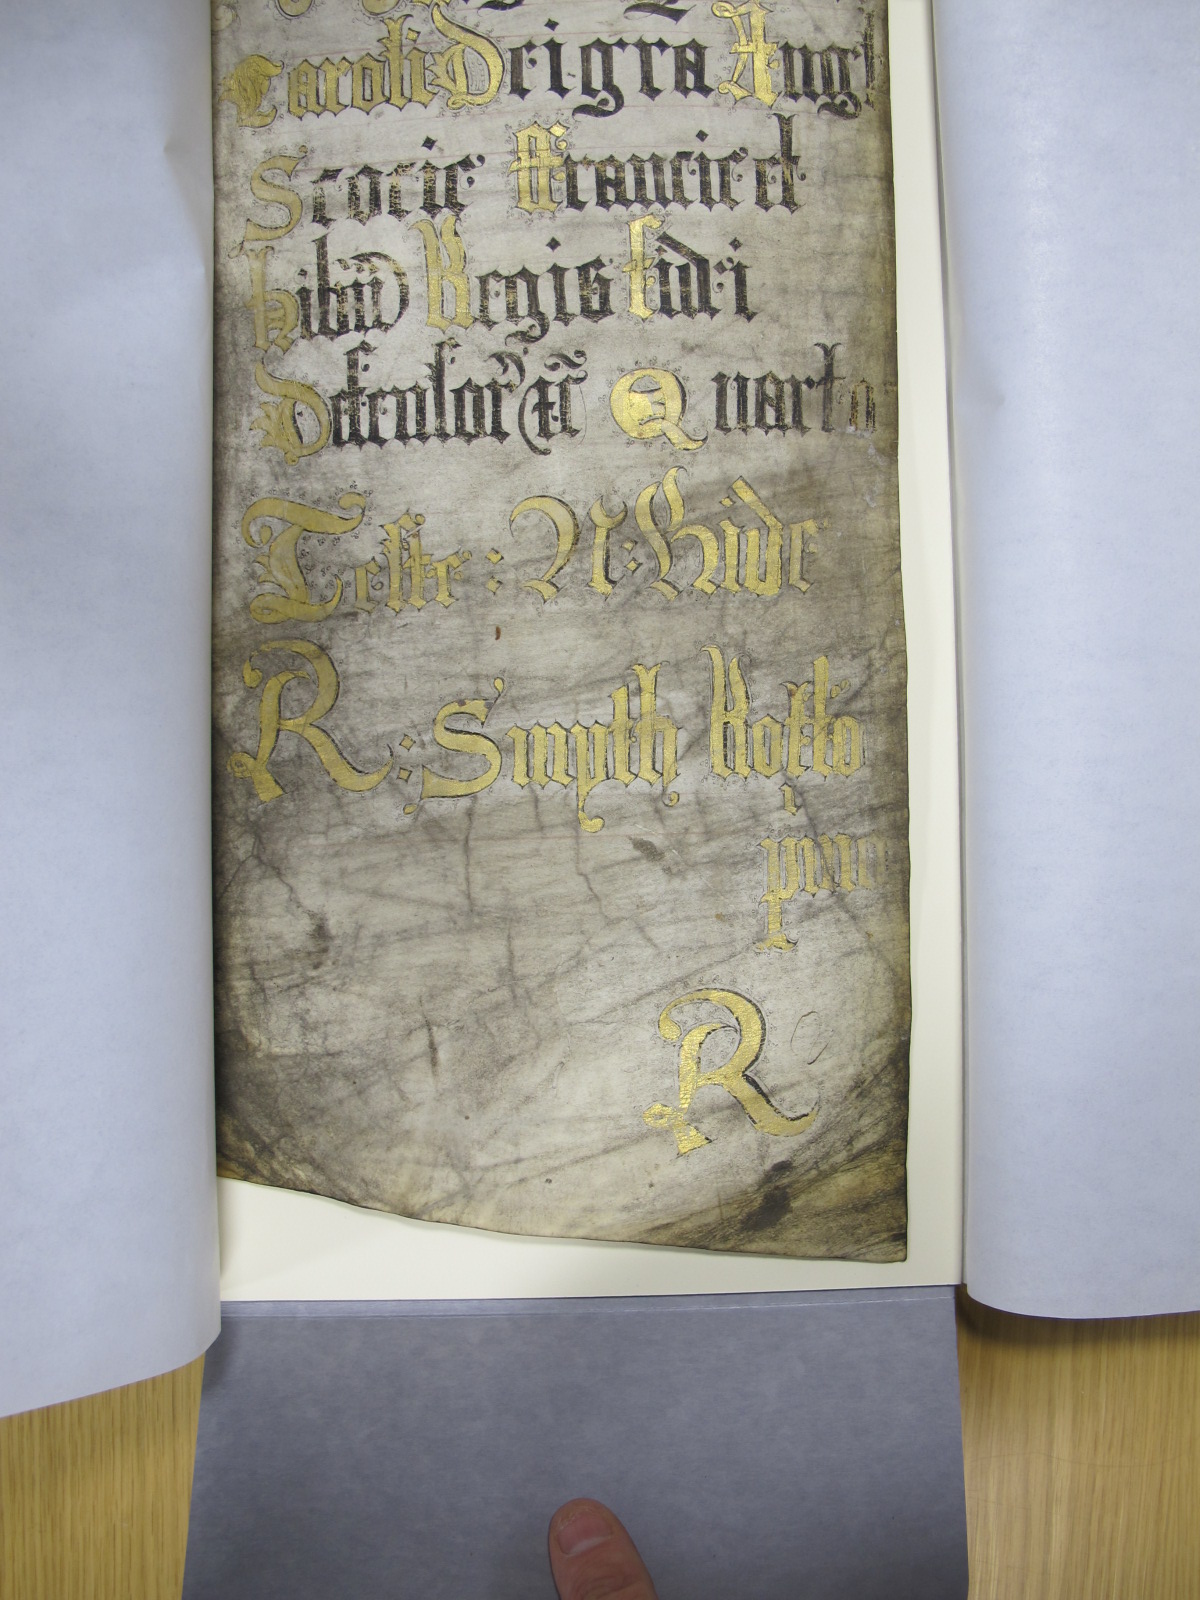 Caroli Dei gra Angl
Scocie Francie et
hibnie Regis fidei
Defensor &c Quarto
Teste: N: Hide
R: Smyth
R